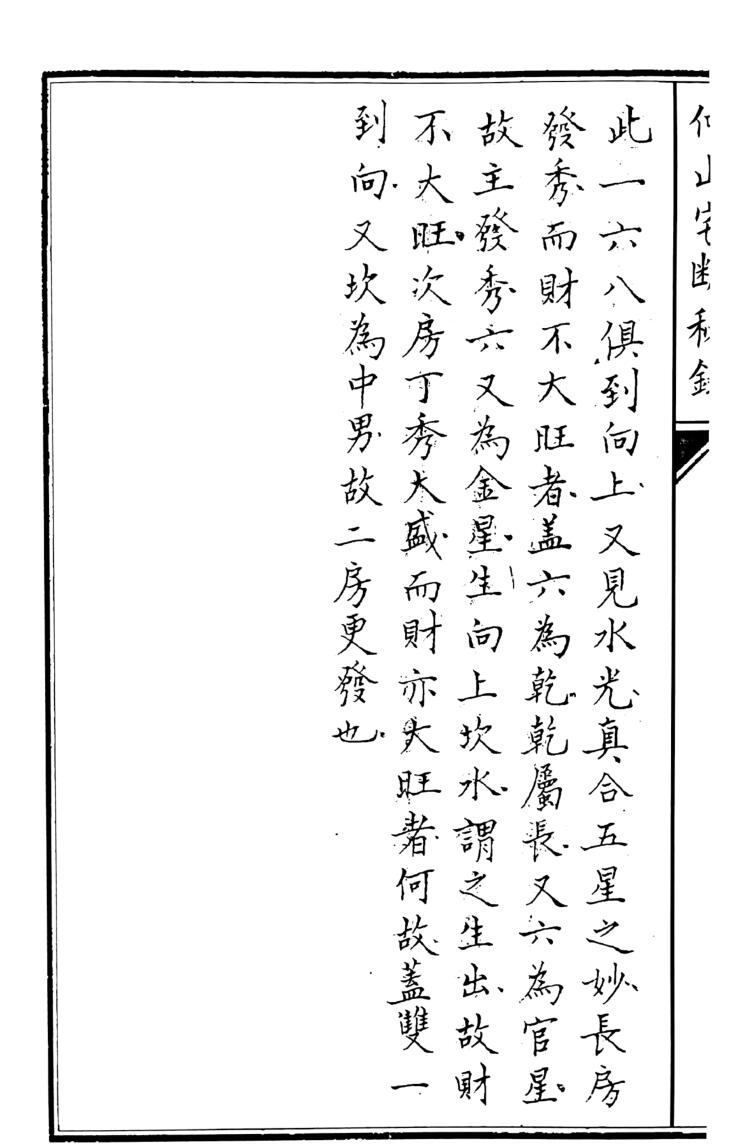 仰山宅斷秘錄
此一六八俱到向上又見水光真合五星之妙長房
發秀而財不大旺者盖六為乾乾屬長又六為官星
故主發秀六又為金星生向上坎水謂之生出故財
不大旺次房丁秀大盛而財亦大旺者何故蓋雙一
到向又坎為中男故二房更發也